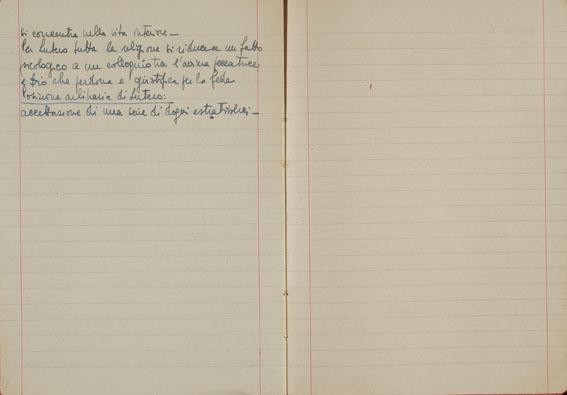 si concentra nella vita interiore_
Per Lutero tutta la religione si riduce a un fatto
psicologico a un colloquio tra l'anima peccatrice
e Dio che perdona e giustifica per la fede
Posizione arbitraria di Lutero:
accettazione di una serie di dogmi